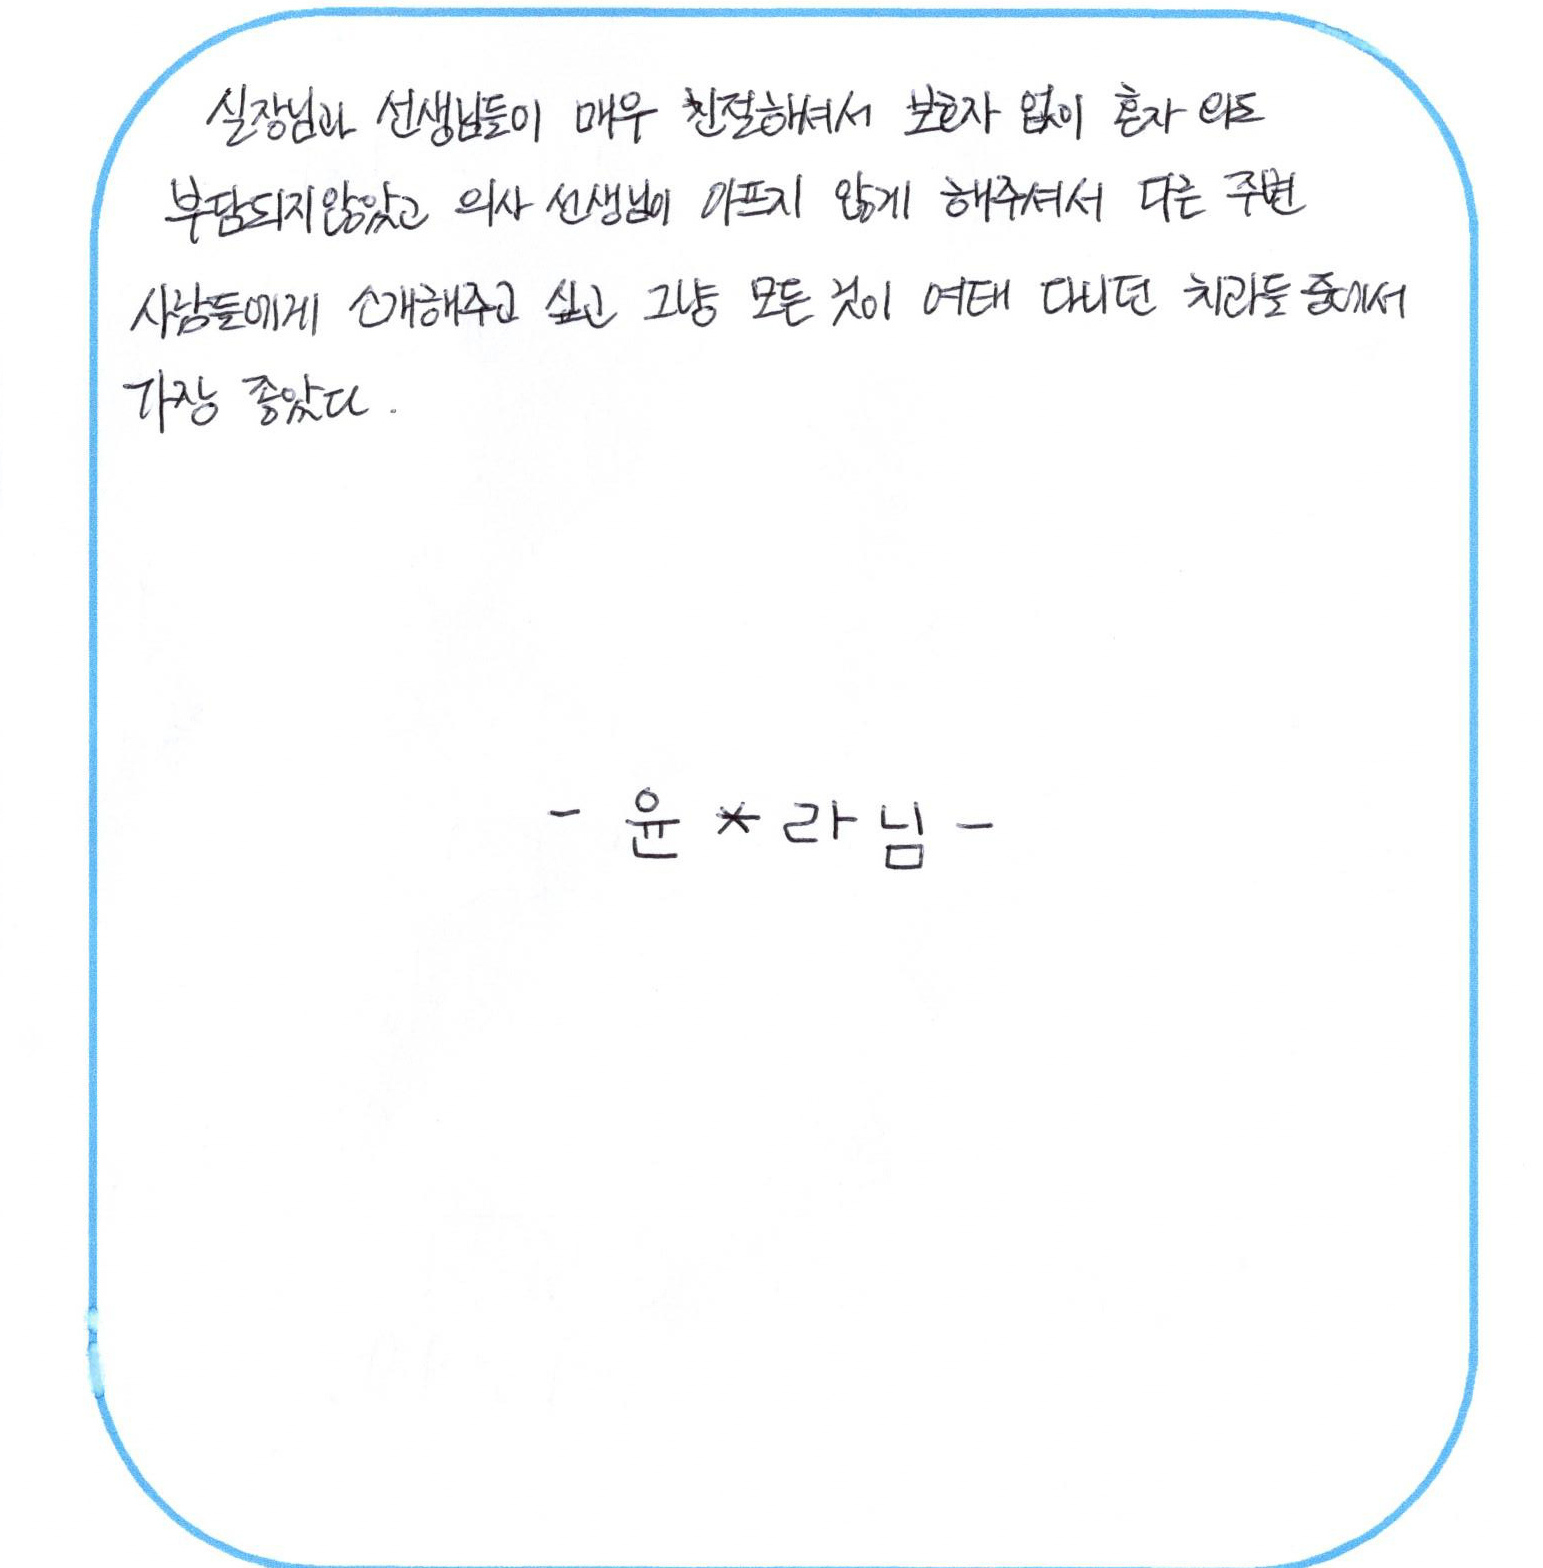 실장님과 선생님들이 매우 친절해셔서 보호자 없이 혼자 와도
부담되지않았고 의사 선생님이 아프지 않게 해주셔서 다른 주변
사람들에게 소개해주고 싶고 그냥 모든 것이 여태 다니던 치과들 중에서
가장 좋았다.
- 윤*라님 -